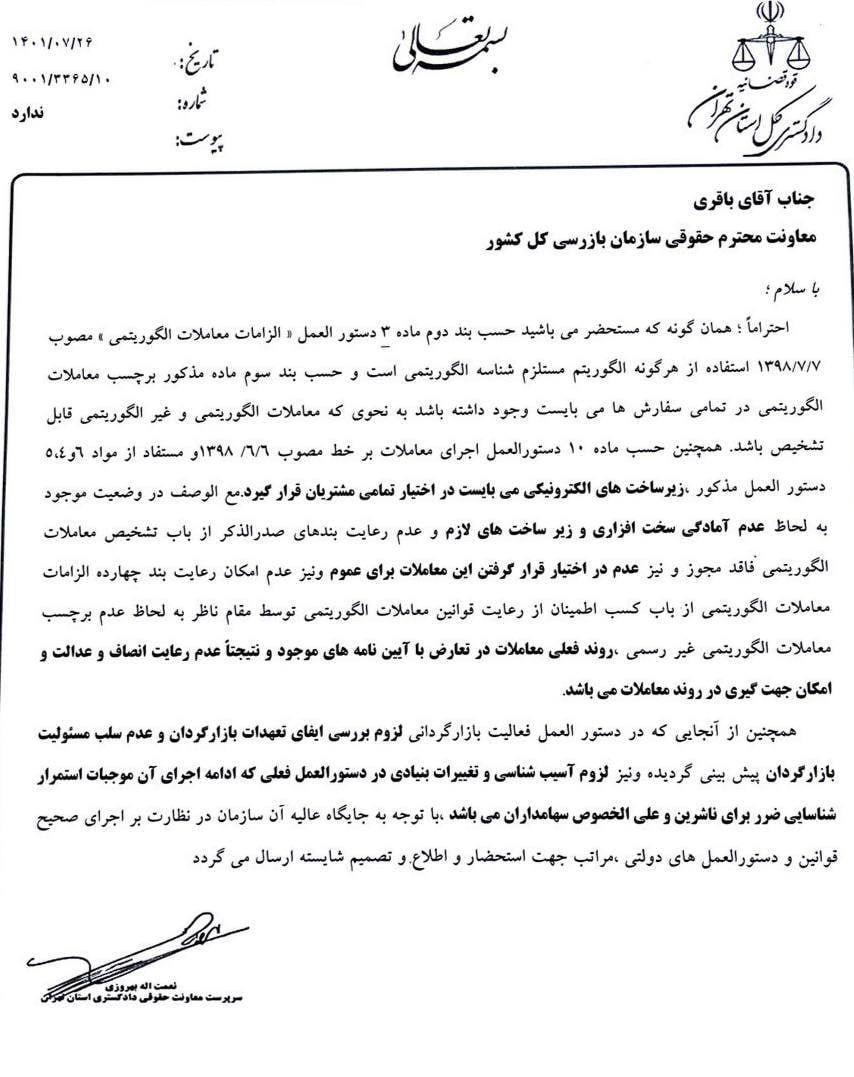 بسمه تعالی
قوه قضائیه
دادگستری کل استان تهران
تاریخ: ۱۴۰۱/۰۷/۲۶
شماره: ۹۰۰۱/۳۳۶۵/۱۰
پیوست: ندارد
جناب آقای باقری
معاونت محترم حقوقی سازمان بازرسی کل کشور
با سلام ؛
احتراماً ؛ همان گونه که مستحضر می باشید حسب بند دوم ماده ۳ دستور العمل « الزامات معاملات الگوریتمی » مصوب
۱۳۹۸/۷/۷ استفاده از هرگونه الگوریتم مستلزم شناسه الگوریتمی است و حسب بند سوم ماده مذکور برچسب معاملات
الگوریتمی در تمامی سفارش ها می بایست وجود داشته باشد به نحوی که معاملات الگوریتمی و غیر الگوریتمی قابل
تشخیص باشد. همچنین حسب ماده ۱۰ دستورالعمل اجرای معاملات بر خط مصوب ۱۳۹۸ /٦/٦و مستفاد از مواد ٦و٥،٤
دستور العمل مذکور ،زیرساخت های الکترونیکی می بایست در اختیار تمامی مشتریان قرار گیرد.مع الوصف در وضعیت موجود
به لحاظ عدم آمادگی سخت افزاری و زیر ساخت های لازم و عدم رعایت بندهای صدرالذکر از باب تشخیص معاملات
الگوریتمی فاقد مجوز و نیز عدم در اختیار قرار گرفتن این معاملات برای عموم ونیز عدم امکان رعایت بند چهارده الزامات
معاملات الگوریتمی از باب کسب اطمینان از رعایت قوانین معاملات الگوریتمی توسط مقام ناظر به لحاظ عدم برچسب
معاملات الگوریتمی غیر رسمی ،روند فعلی معاملات در تعارض با آیین نامه های موجود و نتیجتاً عدم رعایت انصاف و عدالت و
امکان جهت گیری در روند معاملات می باشد.
همچنین از آنجایی که در دستور العمل فعالیت بازارگردانی لزوم بررسی ایفای تعهدات بازارگردان و عدم سلب مسئولیت
بازارگردان پیش بینی گردیده ونیز لزوم آسیب شناسی و تغییرات بنیادی در دستورالعمل فعلی که ادامه اجرای آن موجبات استمرار
شناسایی ضرر برای ناشرین و علی الخصوص سهامداران می باشد ،با توجه به جایگاه عالیه آن سازمان در نظارت بر اجرای صحیح
قوانین و دستورالعمل های دولتی ،مراتب جهت استحضار و اطلاع و تصمیم شایسته ارسال می گردد
نعمت اله بهروزی
سرپرست معاونت حقوقی دادگستری استان تهران